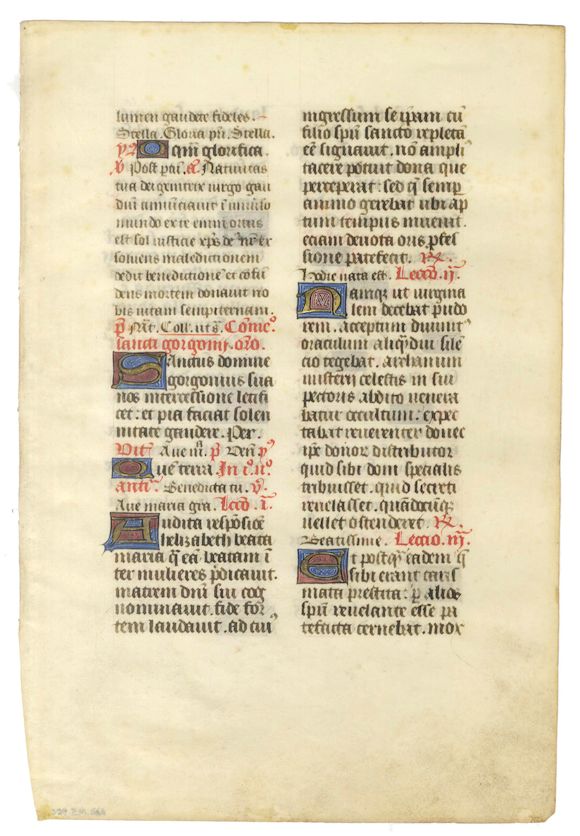 lumen gaudete fideles.
Stella. Gloria pri. Stella.
Qm glorifica.
Nativitas
tua dei genitrix virgo gau
diu annunciavit universo
mundo ex te enim ortus
est sol iusticie xps de nr ex
solvens maledictionem
dedit benedictione et confu
dens mortem donavit no
bis vitam sempiternam.
sancti gorgonii. oro.
Sanctus domine
gorgonius sua
nos intercessione letifi
cet: et pia faciat solen
nitate gaudere. Per.
Que terra. In
Benedicta tu. v.
Ave maria gra. Lcco. i.
Audita respōsiōe
helizabeth beata
maria q eā beatam i
ter mulieres pdicavit.
matrem dni sui cog
nominavit. fide for
tem laudavit. ad cui
ingressum se ipam cu
filio spu sancto repleta
eē signavit. nō ampli
tacere potuit dona que
perceperat: sed q semp
animo gerebat ubi ap
tum tempus invenit.
eciam devota oris pfes
sione patefecit. R.
Hodie nata est. Leccō. ij.
Namque ut virgina
lem decebat pudo
rem. acceptum divinū
oraculum aliqdiu sile
cio tegebat. archanum
misterii celestis in sui
pectoris abdito venera
batur occultum: expec
tabat reverenter donec
ipe donor distributor
quid sibi doni specialis
tribuisset. quid secreti
revelasset. quādocūq
vellet ostenderet. R.
Beatissime. Leccio. iij.
Et postq eadem q
sibi erant caris
mata prestita: p alios
spu revelante esse pa
tefacta cernebat. mox